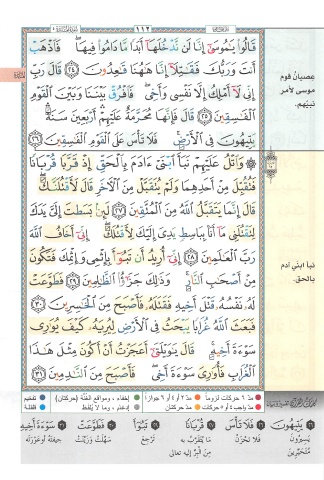 ١١٢
قَالُوا۟ يَـٰمُوسَىٰٓ إِنَّا لَن نَّدْخُلَهَآ أَبَدًا مَّا دَامُوا۟ فِيهَا ۖ فَٱذْهَبْ
أَنتَ وَرَبُّكَ فَقَـٰتِلَآ إِنَّا هَـٰهُنَا قَـٰعِدُونَ ٢٤ قَالَ رَبِّ
إِنِّى لَآ أَمْلِكُ إِلَّا نَفْسِى وَأَخِى ۖ فَٱفْرُقْ بَيْنَنَا وَبَيْنَ ٱلْقَوْمِ
ٱلْفَـٰسِقِينَ ٢٥ قَالَ فَإِنَّهَا مُحَرَّمَةٌ عَلَيْهِمْ ۛ أَرْبَعِينَ سَنَةً ۛ
يَتِيهُونَ فِى ٱلْأَرْضِ ۚ فَلَا تَأْسَ عَلَى ٱلْقَوْمِ ٱلْفَـٰسِقِينَ ٢٦
۞ وَٱتْلُ عَلَيْهِمْ نَبَأَ ٱبْنَىْ ءَادَمَ بِٱلْحَقِّ إِذْ قَرَّبَا قُرْبَانًا
فَتُقُبِّلَ مِنْ أَحَدِهِمَا وَلَمْ يُتَقَبَّلْ مِنَ ٱلْـَٔاخَرِ قَالَ لَأَقْتُلَنَّكَ ۖ
قَالَ إِنَّمَا يَتَقَبَّلُ ٱللَّهُ مِنَ ٱلْمُتَّقِينَ ٢٧ لَئِنۢ بَسَطتَ إِلَىَّ يَدَكَ
لِتَقْتُلَنِى مَآ أَنَا۠ بِبَاسِطٍ يَدِىَ إِلَيْكَ لِأَقْتُلَكَ ۖ إِنِّىٓ أَخَافُ ٱللَّهَ
رَبَّ ٱلْعَـٰلَمِينَ ٢٨ إِنِّىٓ أُرِيدُ أَن تَبُوٓأَ بِإِثْمِى وَإِثْمِكَ فَتَكُونَ
مِنْ أَصْحَـٰبِ ٱلنَّارِ ۚ وَذَٰلِكَ جَزَٰٓؤُا۟ ٱلظَّـٰلِمِينَ ٢٩ فَطَوَّعَتْ
لَهُۥ نَفْسُهُۥ قَتْلَ أَخِيهِ فَقَتَلَهُۥ فَأَصْبَحَ مِنَ ٱلْخَـٰسِرِينَ ٣٠
فَبَعَثَ ٱللَّهُ غُرَابًا يَبْحَثُ فِى ٱلْأَرْضِ لِيُرِيَهُۥ كَيْفَ يُوَٰرِى
سَوْءَةَ أَخِيهِ ۚ قَالَ يَـٰوَيْلَتَىٰٓ أَعَجَزْتُ أَنْ أَكُونَ مِثْلَ هَـٰذَا
ٱلْغُرَابِ فَأُوَٰرِىَ سَوْءَةَ أَخِى ۖ فَأَصْبَحَ مِنَ ٱلنَّـٰدِمِينَ ٣١
عصيان قوم
موسى لأمر
نبيهم.
نبأ ابني آدم
بالحق.
مدّ ٦ حركات لزوماً مدّ ٢ أو ٤ أو ٦ جوازاً إخفاء، ومواقع الغُنَّة (حركتان) تفخيم
مدّ واجب ٤ أو ٥ حركات مدّ حركتان إدغام، وما لا يُلفَظ قلقلة
يَتِيهُونَ فَلَا تَأْسَ قُرْبَانًا تَبُوٓأَ فَطَوَّعَتْ سَوْءَةَ أَخِيهِ
يسيرون فلا تحزن ما يُتقرَّب به ترجع سهّلت وزيّنت جيفته أو عورته
متحيّرين من البِرّ إليه تعالى